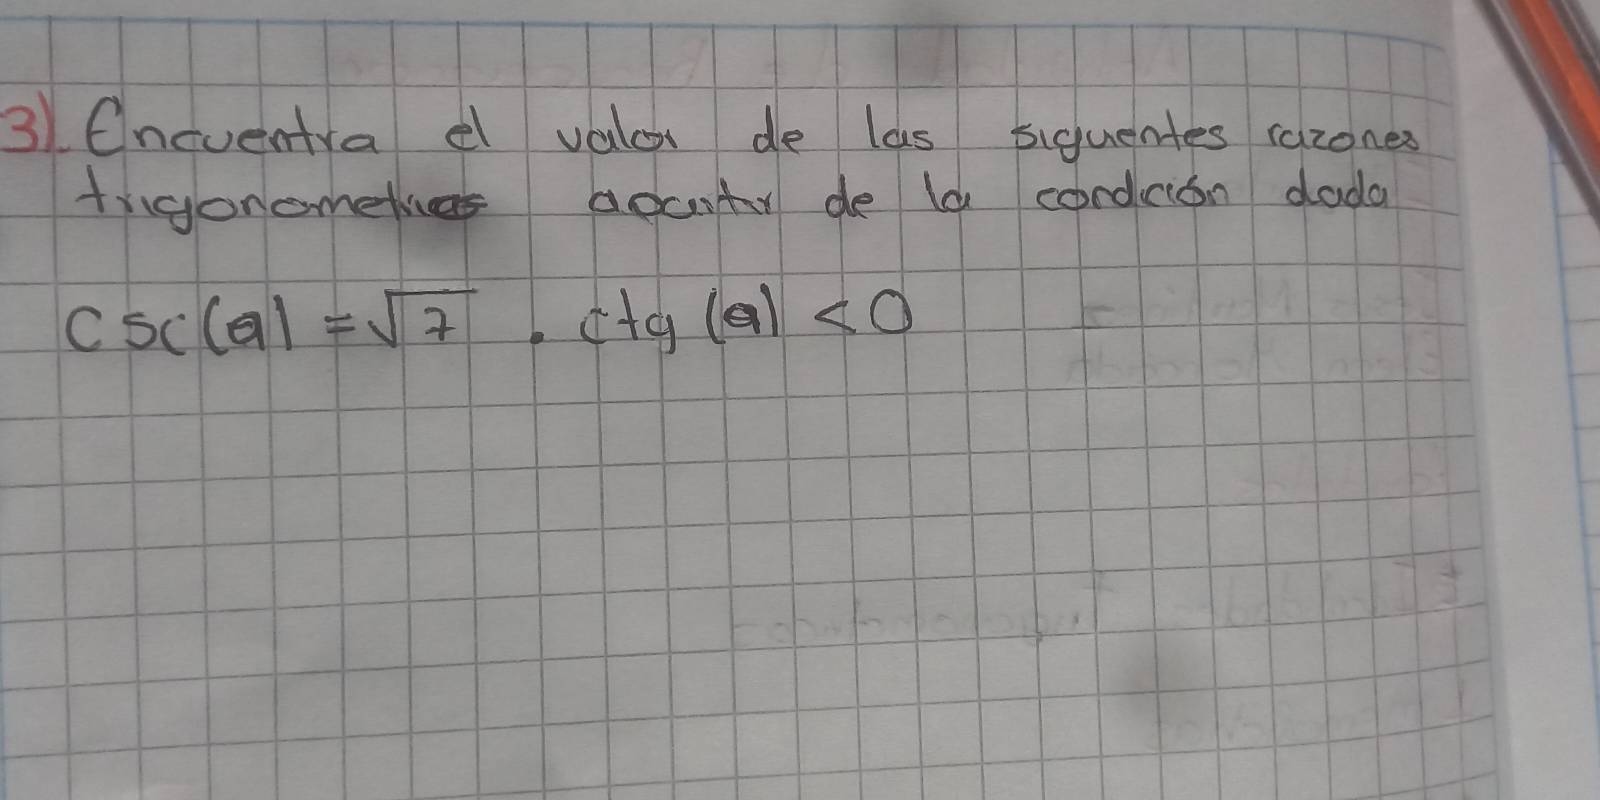 3). Encuentra el valor de las siguientes razones
trigonometricas apartir de la condición dada
csc(θ) = √7 . ctg (θ) < 0